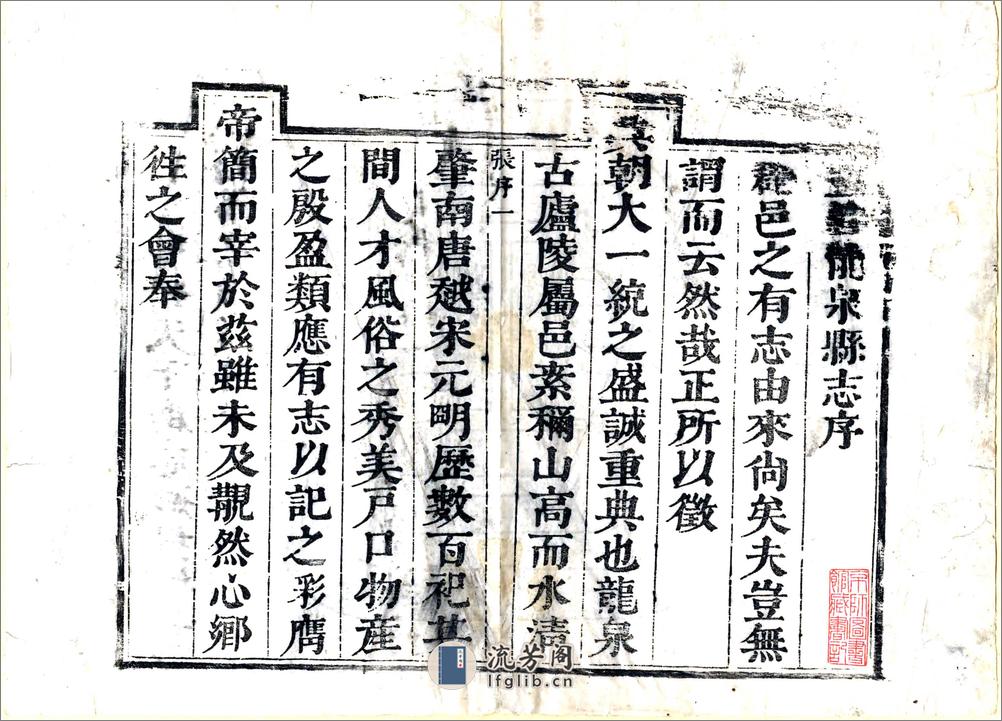 龍泉縣志序
郡邑之有志由來尙矣夫豈無
謂而云然哉正所以徵
朝大一統之盛誠重典也龍泉
古廬陵屬邑素稱山高而水清
張序一
肇南唐越宋元明歷數百祀其
間人才風俗之秀美戸口物產
之殷盈類應有志以記之彩膺
帝簡而宰於茲雖未及覩然心鄉
徃之會奉
流芳阁
lfglib.cn